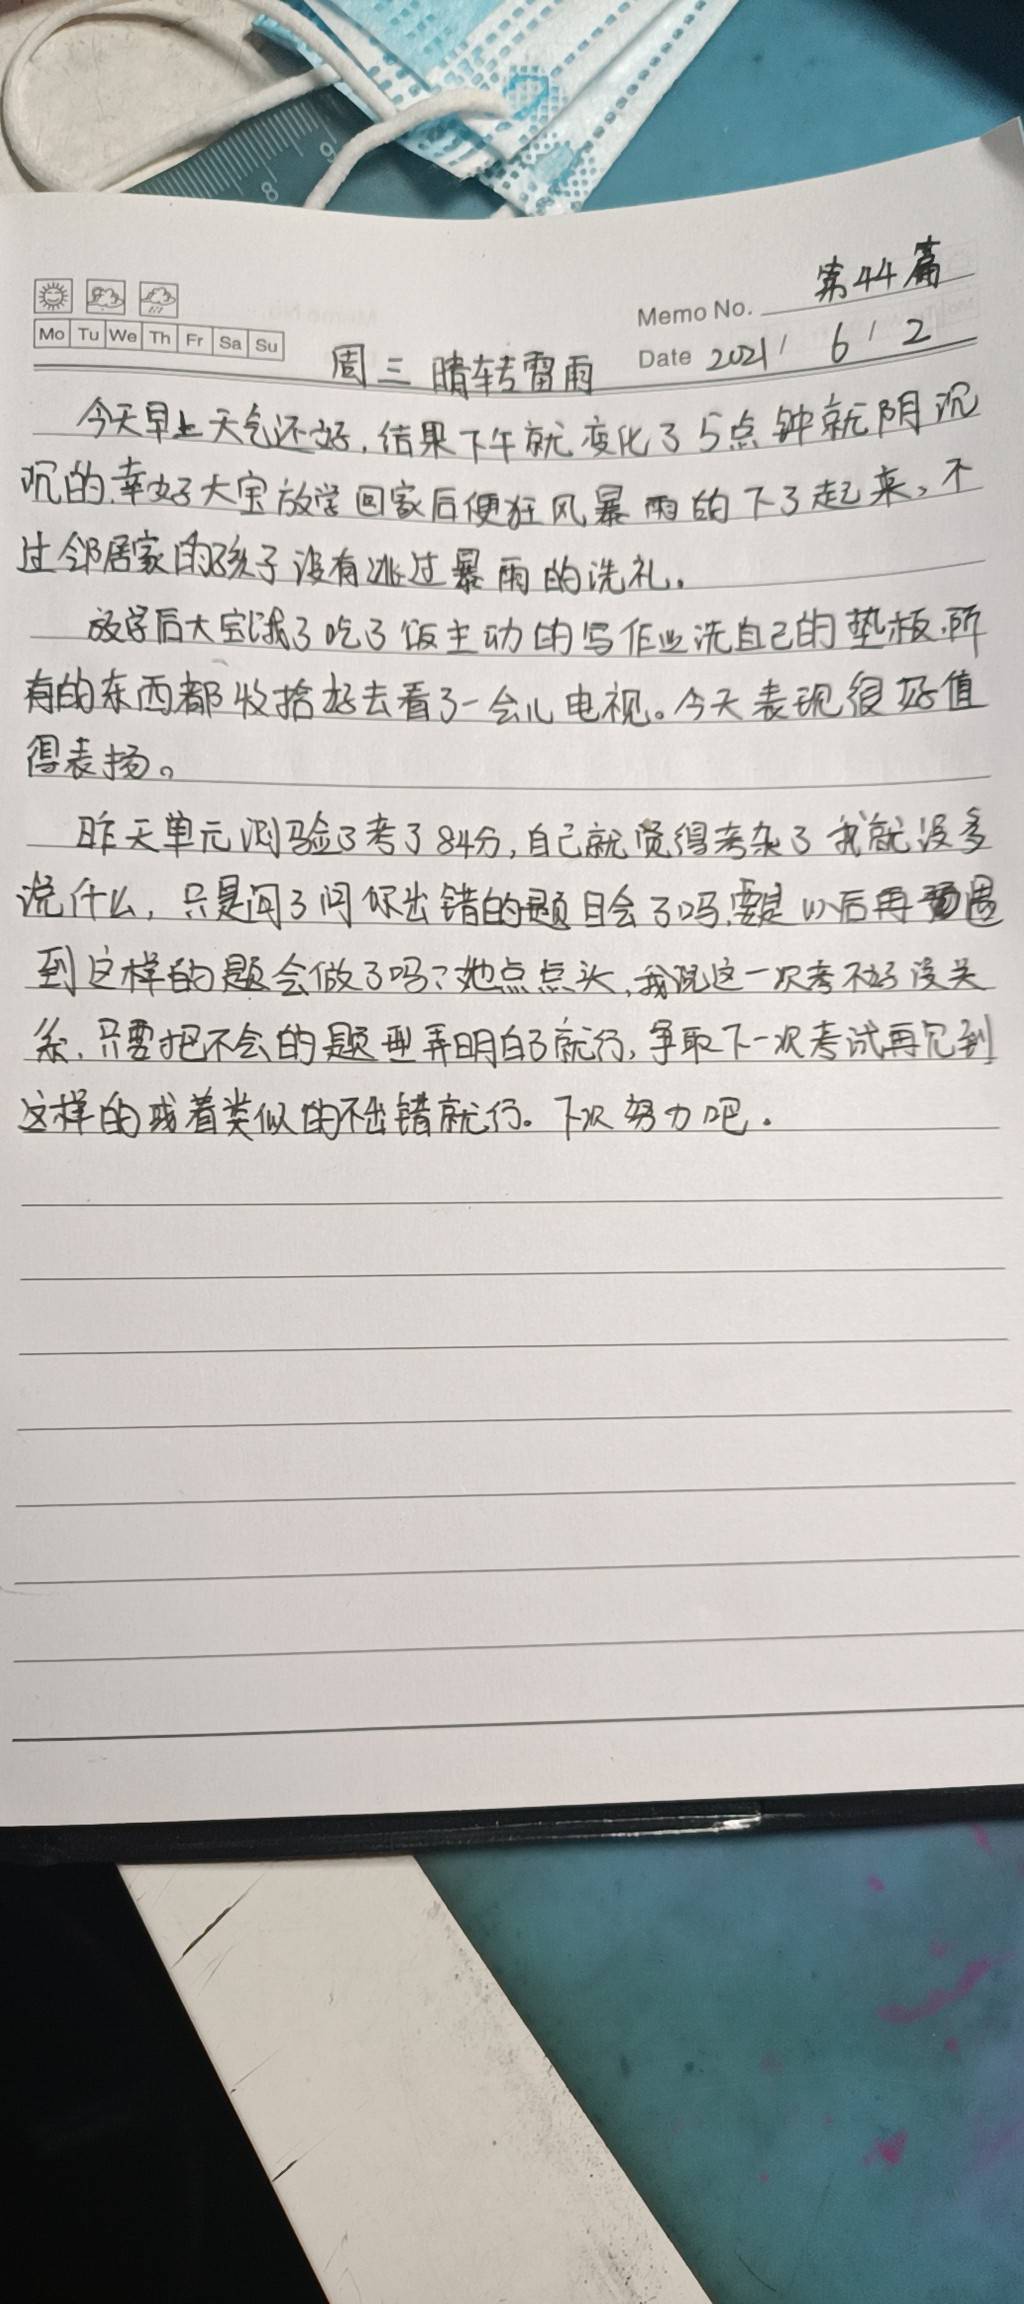 9
8
第44篇
Memo No.
Mo Tu We Th Fr Sa Su
Date 2021/6/2
周三 晴转雷雨
今天早上天气还好,结果下午就变化了5点钟就阴沉
沉的.幸好大宝放学回家后便狂风暴雨的下了起来、不
过邻居家的孩子没有逃过暴雨的洗礼.
放学后大宝饿了吃了饭主动的写作业洗自己的垫板.所
有的东西都收拾好去看了一会儿电视。今天表现很好值
得表扬。
昨天单元测验了考了84分,自己就觉得考杂了我就没多
说什么,只是问了问你出错的题目会了吗.要是以后再遇
到这样的题会做了吗?她点点头,我说这一次考不好没关
系.只要把不会的题型弄明白了就行,争取下一次考试再见到
这样的或着类似的不出错就行。下次努力吧.